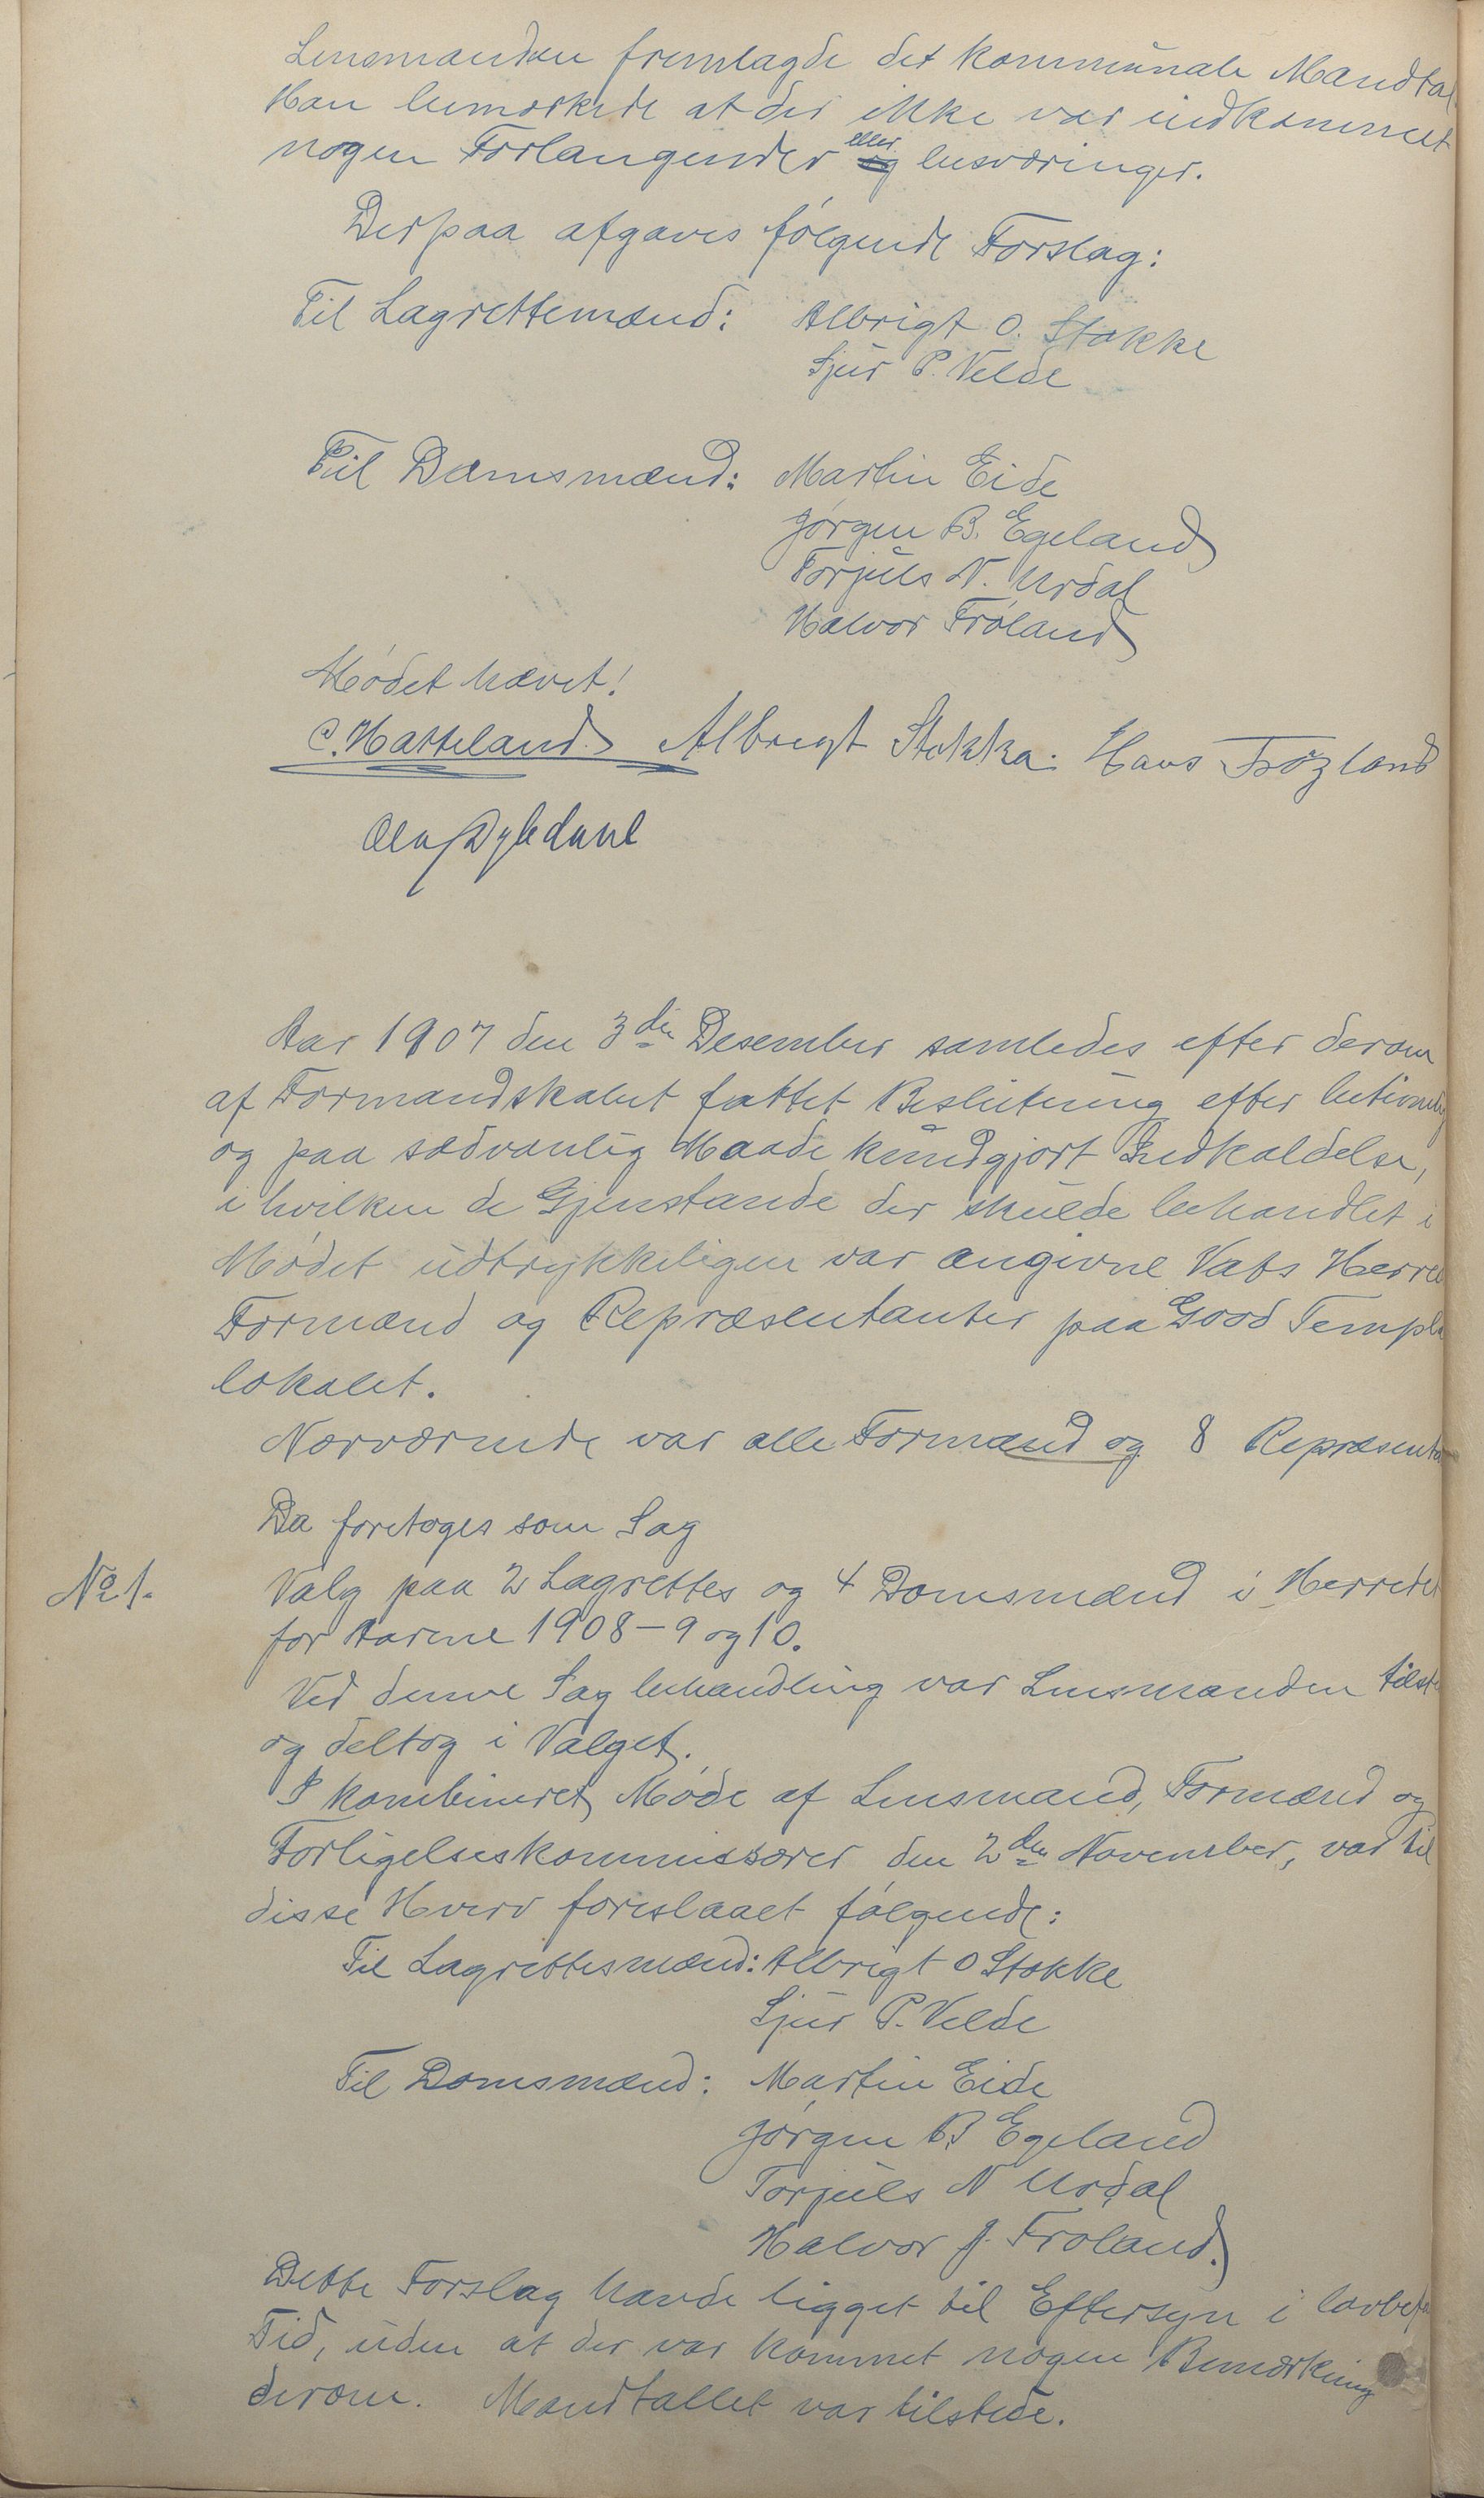 Lensmanden fremlagde det kommunale Mandtal
Han bemærkede at der ikke var indkommet
nogen Forlangender eller besværinger.
Derpaa afgaves følgende Forslag:
Til Lagrettemænd: Albrigt O. Stokke
Sjur P. Velde
Til Domsmænd: Martin Eide
Jørgen B. Egeland
Torjuls N. Urdal
Halvor Frøland
Mødet hævet!
C. Hatteland Albregt Stokka. Hans Frøland
Aar 1907 den 3die Desember samledes efter derom
af Formandskabet fattet Beslutning efter betimelig
og paa sædvanlig Maade kundgjort Indkaldelse,
i hvilken de Gjenstande der skulde behandlet i
Mødet udtrykkeligen var angivne Vats Herreds
Formænd og Repræsentanter paa Good Templar
lokalet.
Nærværende var alle Formænd og 8 Repræsenta
Da foretoges som Sag
No 1. Valg paa 2 Lagrettes og 4 Domsmænd i Herredet
for Aarene 1908-9 og 10.
Ved denne Sag behandling var Lensmanden tilste
og deltog i Valget.
I kombineret Møde af Lensmand, Formænd og
Forligelseskommissærer den 2den November, var til
disse Hverv foreslaaet følgende:
Til Lagrettesmænd: Albrigt O Stokke
Sjur P. Velde
Til Domsmænd: Martin Eide
Jørgen B Egeland
Torjuls N Urdal
Halvor J. Frøland.
Dette Forslag havde ligget til Eftersyn i lovbefa
Tid, uden at der var kommet nogen Bemærkning
derom. Mandtallet var tilstede.